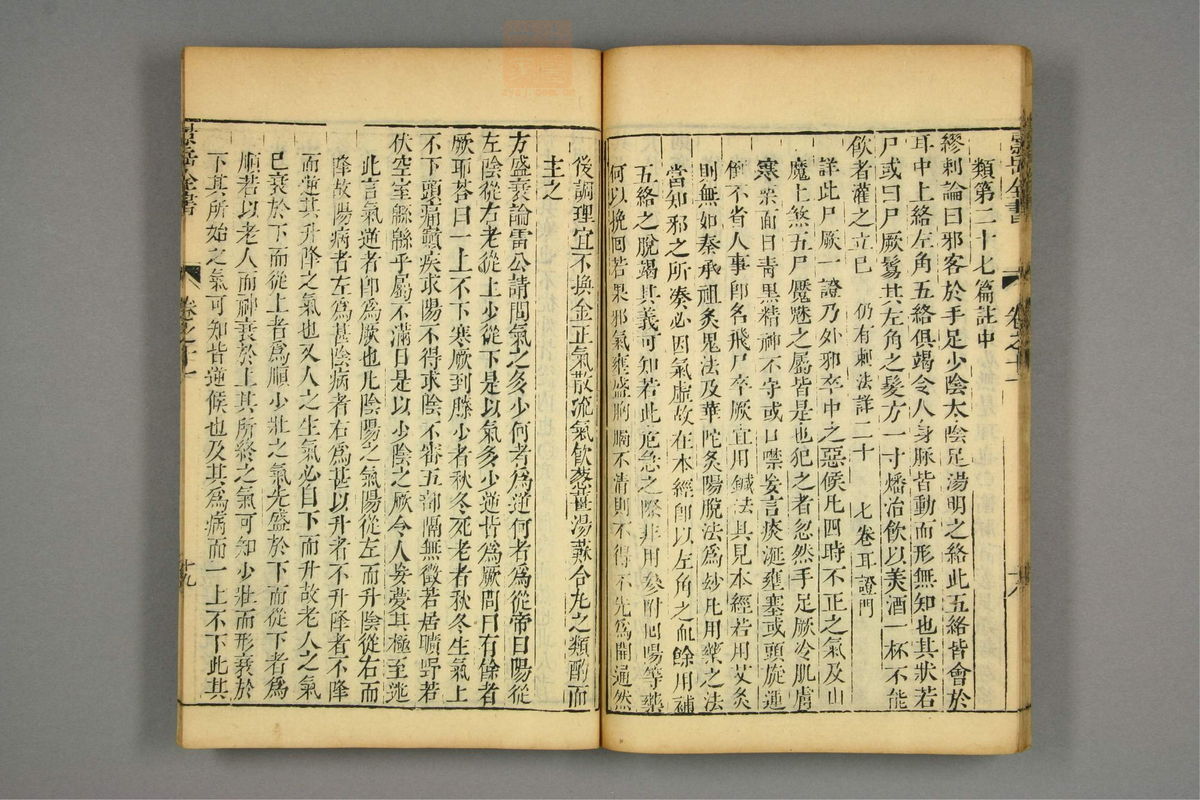 景岳全書
卷之十一
十八
類第二十七篇註中
繆刺論曰邪客於手足少陰太陰足陽明之絡此五絡皆會於
耳中上絡左角五絡俱竭令人身脈皆動而形無知也其狀若
尸或曰尸厥鬄其左角之髮方一寸燔治飲以美酒一杯不能
飲者灌之立已 仍有刺法詳二十 七卷耳證門
詳此尸厥一證乃外邪卒中之惡候凡四時不正之氣及山
魔土煞五尸魘魅之屬皆是也犯之者忽然手足厥冷肌膚
寒栗面目青黑精神不守或口噤妄言痰涎壅塞或頭旋運
倒不省人事卽名飛尸卒厥宜用鍼法具見本經若用艾灸
則無如秦承祖灸鬼法及華陀灸陽脫法爲妙凡用藥之法
當知邪之所凑必因氣虛故在本經卽以左角之血餘用補
五絡之脫竭其義可知若此危急之際非用參附囘陽等藥
何以挽囘若果邪氣壅盛胸膈不清則不得不先爲開通然
後調理宜不換金正氣散流氣飲葱薑湯蘇合丸之類酌而
主之
方盛衰論雷公請問氣之多少何者爲逆何者爲從帝曰陽從
左陰從右老從上少從下是以氣多少逆皆爲厥問曰有餘者
厥耶答曰一上不下寒厥到膝少者秋冬死老者秋冬生氣上
不下頭痛巔疾求陽不得求陰不審五部隔無徵若居曠野若
伏空室緜緜乎屬不滿日是以少陰之厥令人妄夢其極至迷
此言氣逆者卽爲厥也凡陰陽之氣陽從左而升陰從右而
降故陽病者左爲甚陰病者右爲甚以升者不升降者不降
而逆其升降之氣也又人之生氣必自下而升故老人之氣
已衰於下而從上者爲順少壯之氣先盛於下而從下者爲
順若以老人而神衰於上其所終之氣可知少壯而形衰於
下其所始之氣可知皆逆候也及其爲病而一上不下此其
景岳全書
卷之十一
十九